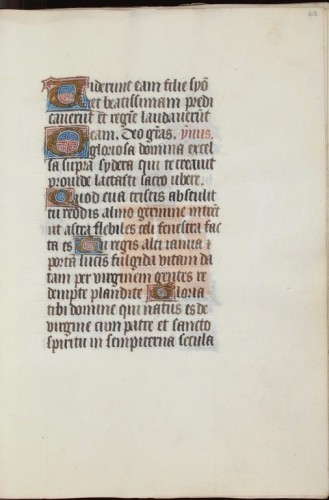 Viderunt eam filie syõ
et beatissimam predi
caverũt et regie laudaverũt
eam. Deo gr̃as. ymnus.
O gloriosa domina excel
sa supra sydera qui te creavit
provide lactasti sacro ubere.
Quod eva tristis abstulit
tu reddis almo germine intrẽt
ut astra flebiles celi fenestra fac
ta es Tu regis alti ianua et
porta lucis fulgida vitam da
tam per virginem gentes re
dempte plaudite Gloria
tibi domine qui natus es de
virgine cum patre et sancto
spiritu in sempiterna secula